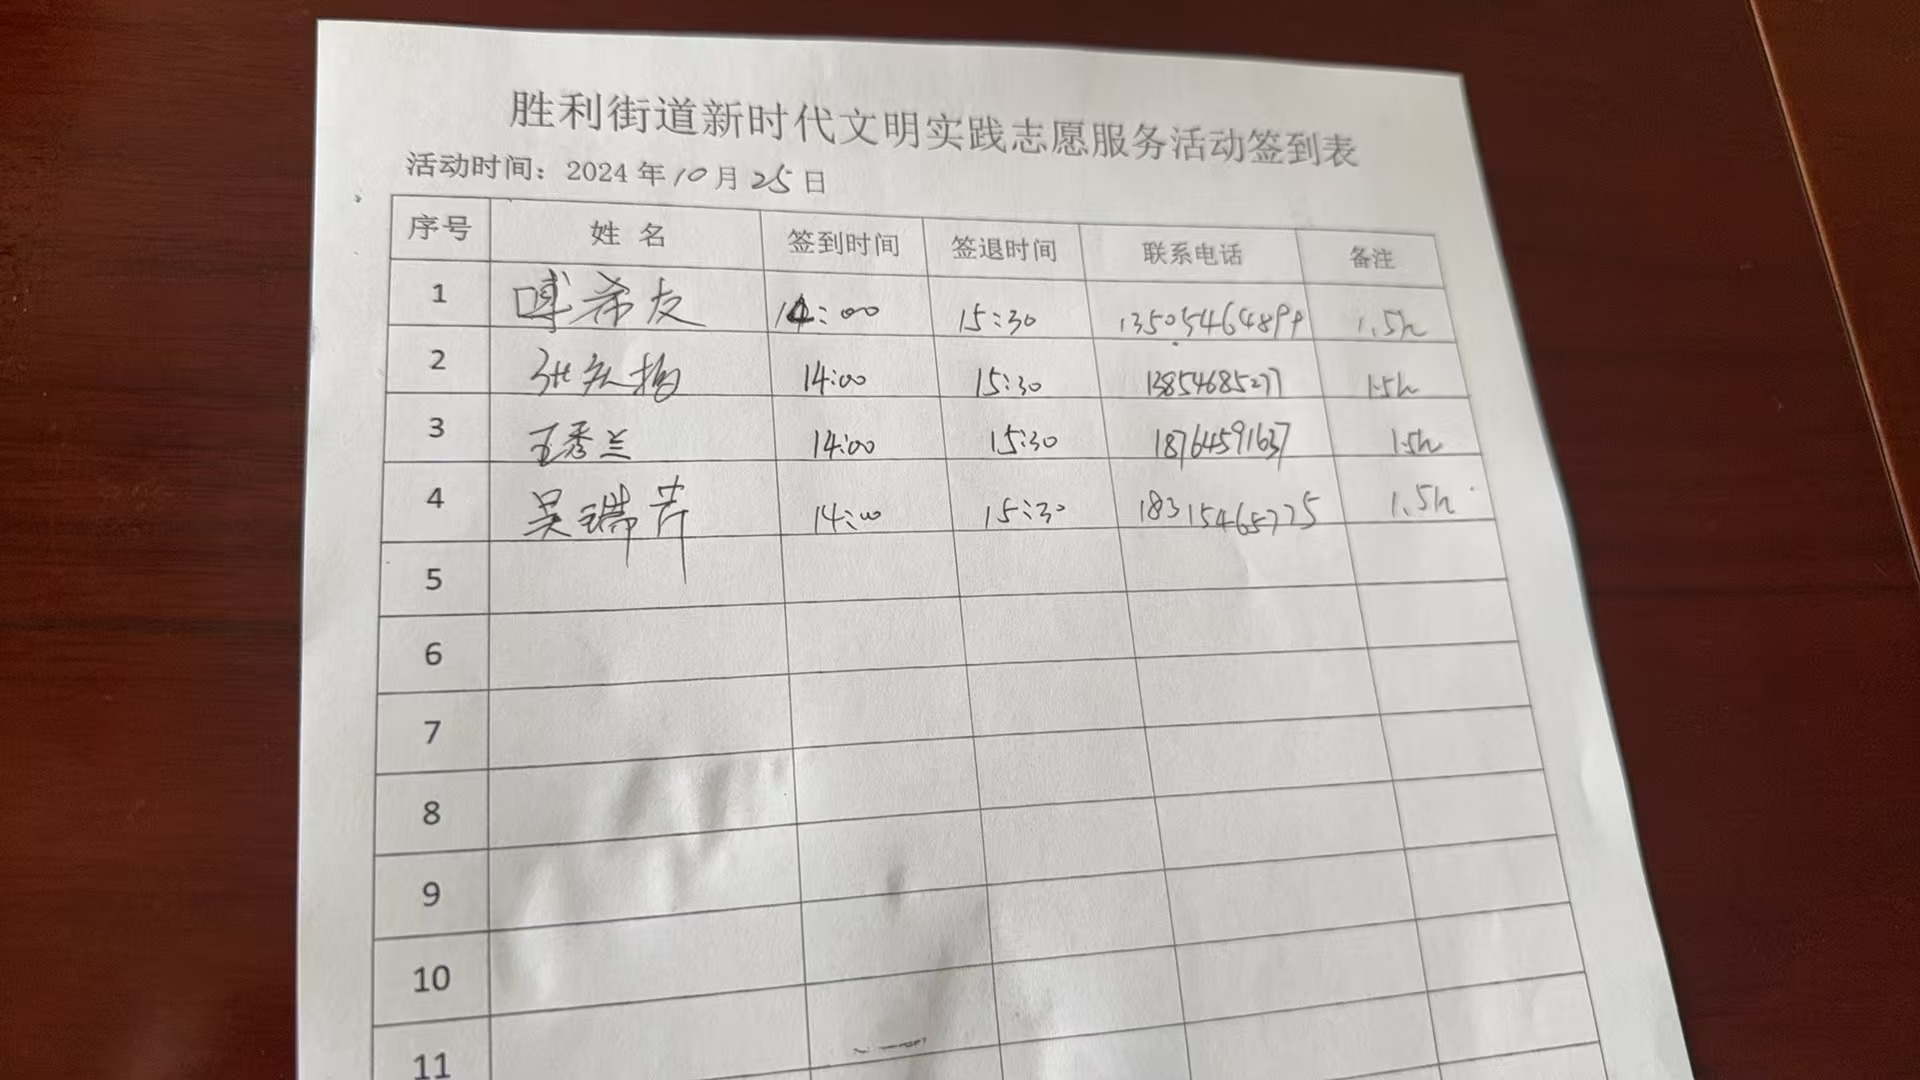 胜利街道新时代文明实践志愿服务活动签到表
活动时间：2024 年 10 月 25 日
序号 姓 名 签到时间 签退时间 联系电话 备注
1 希友 14:00 15:30 13505464899 1.5h
2 张 14:00 15:30 13854685277 1.5h
3 王秀兰 14:00 15:30 18764591637 1.5h
4 吴瑞芹 14:00 15:30 18315465775 1.5h
5
6
7
8
9
10
11